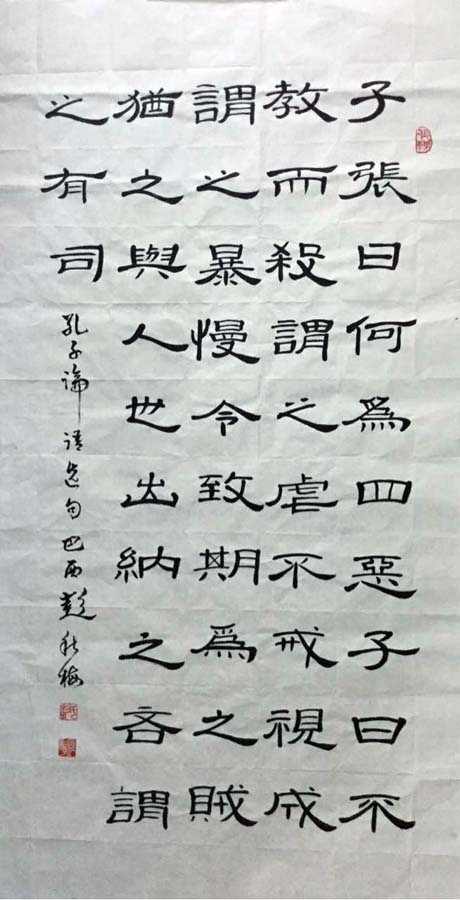 子張曰何爲四惡子曰不
教而殺謂之虐不戒視成
謂之暴慢令致期爲之賊
猶之與人也出納之吝謂
之有司
孔子論語选句巴西彭秋梅